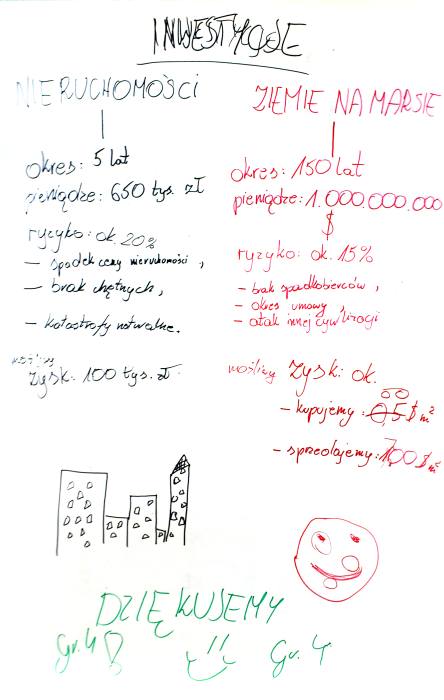 INWESTYCJE
NIERUCHOMOŚCI
okres: 5 lat
pieniądze: 650 tys. zł
ryzyko: ok. 20%
– spadek ceny nieruchomości,
– brak chętnych,
– katastrofy naturalne.
możliwy
zysk: 100 tys. zł
ZIEMIE NA MARSIE
okres: 150 lat
pieniądze: 1.000.000.000
$
ryzyko: ok. 15%
– brak spadkobierców,
– okres umowy,
– atak innej cywilizacji
możliwy zysk: ok.
– kupujemy: $ m²
– sprzedajemy: $ m²
DZIĘKUJEMY
Gr. 4 !
Gr. 4